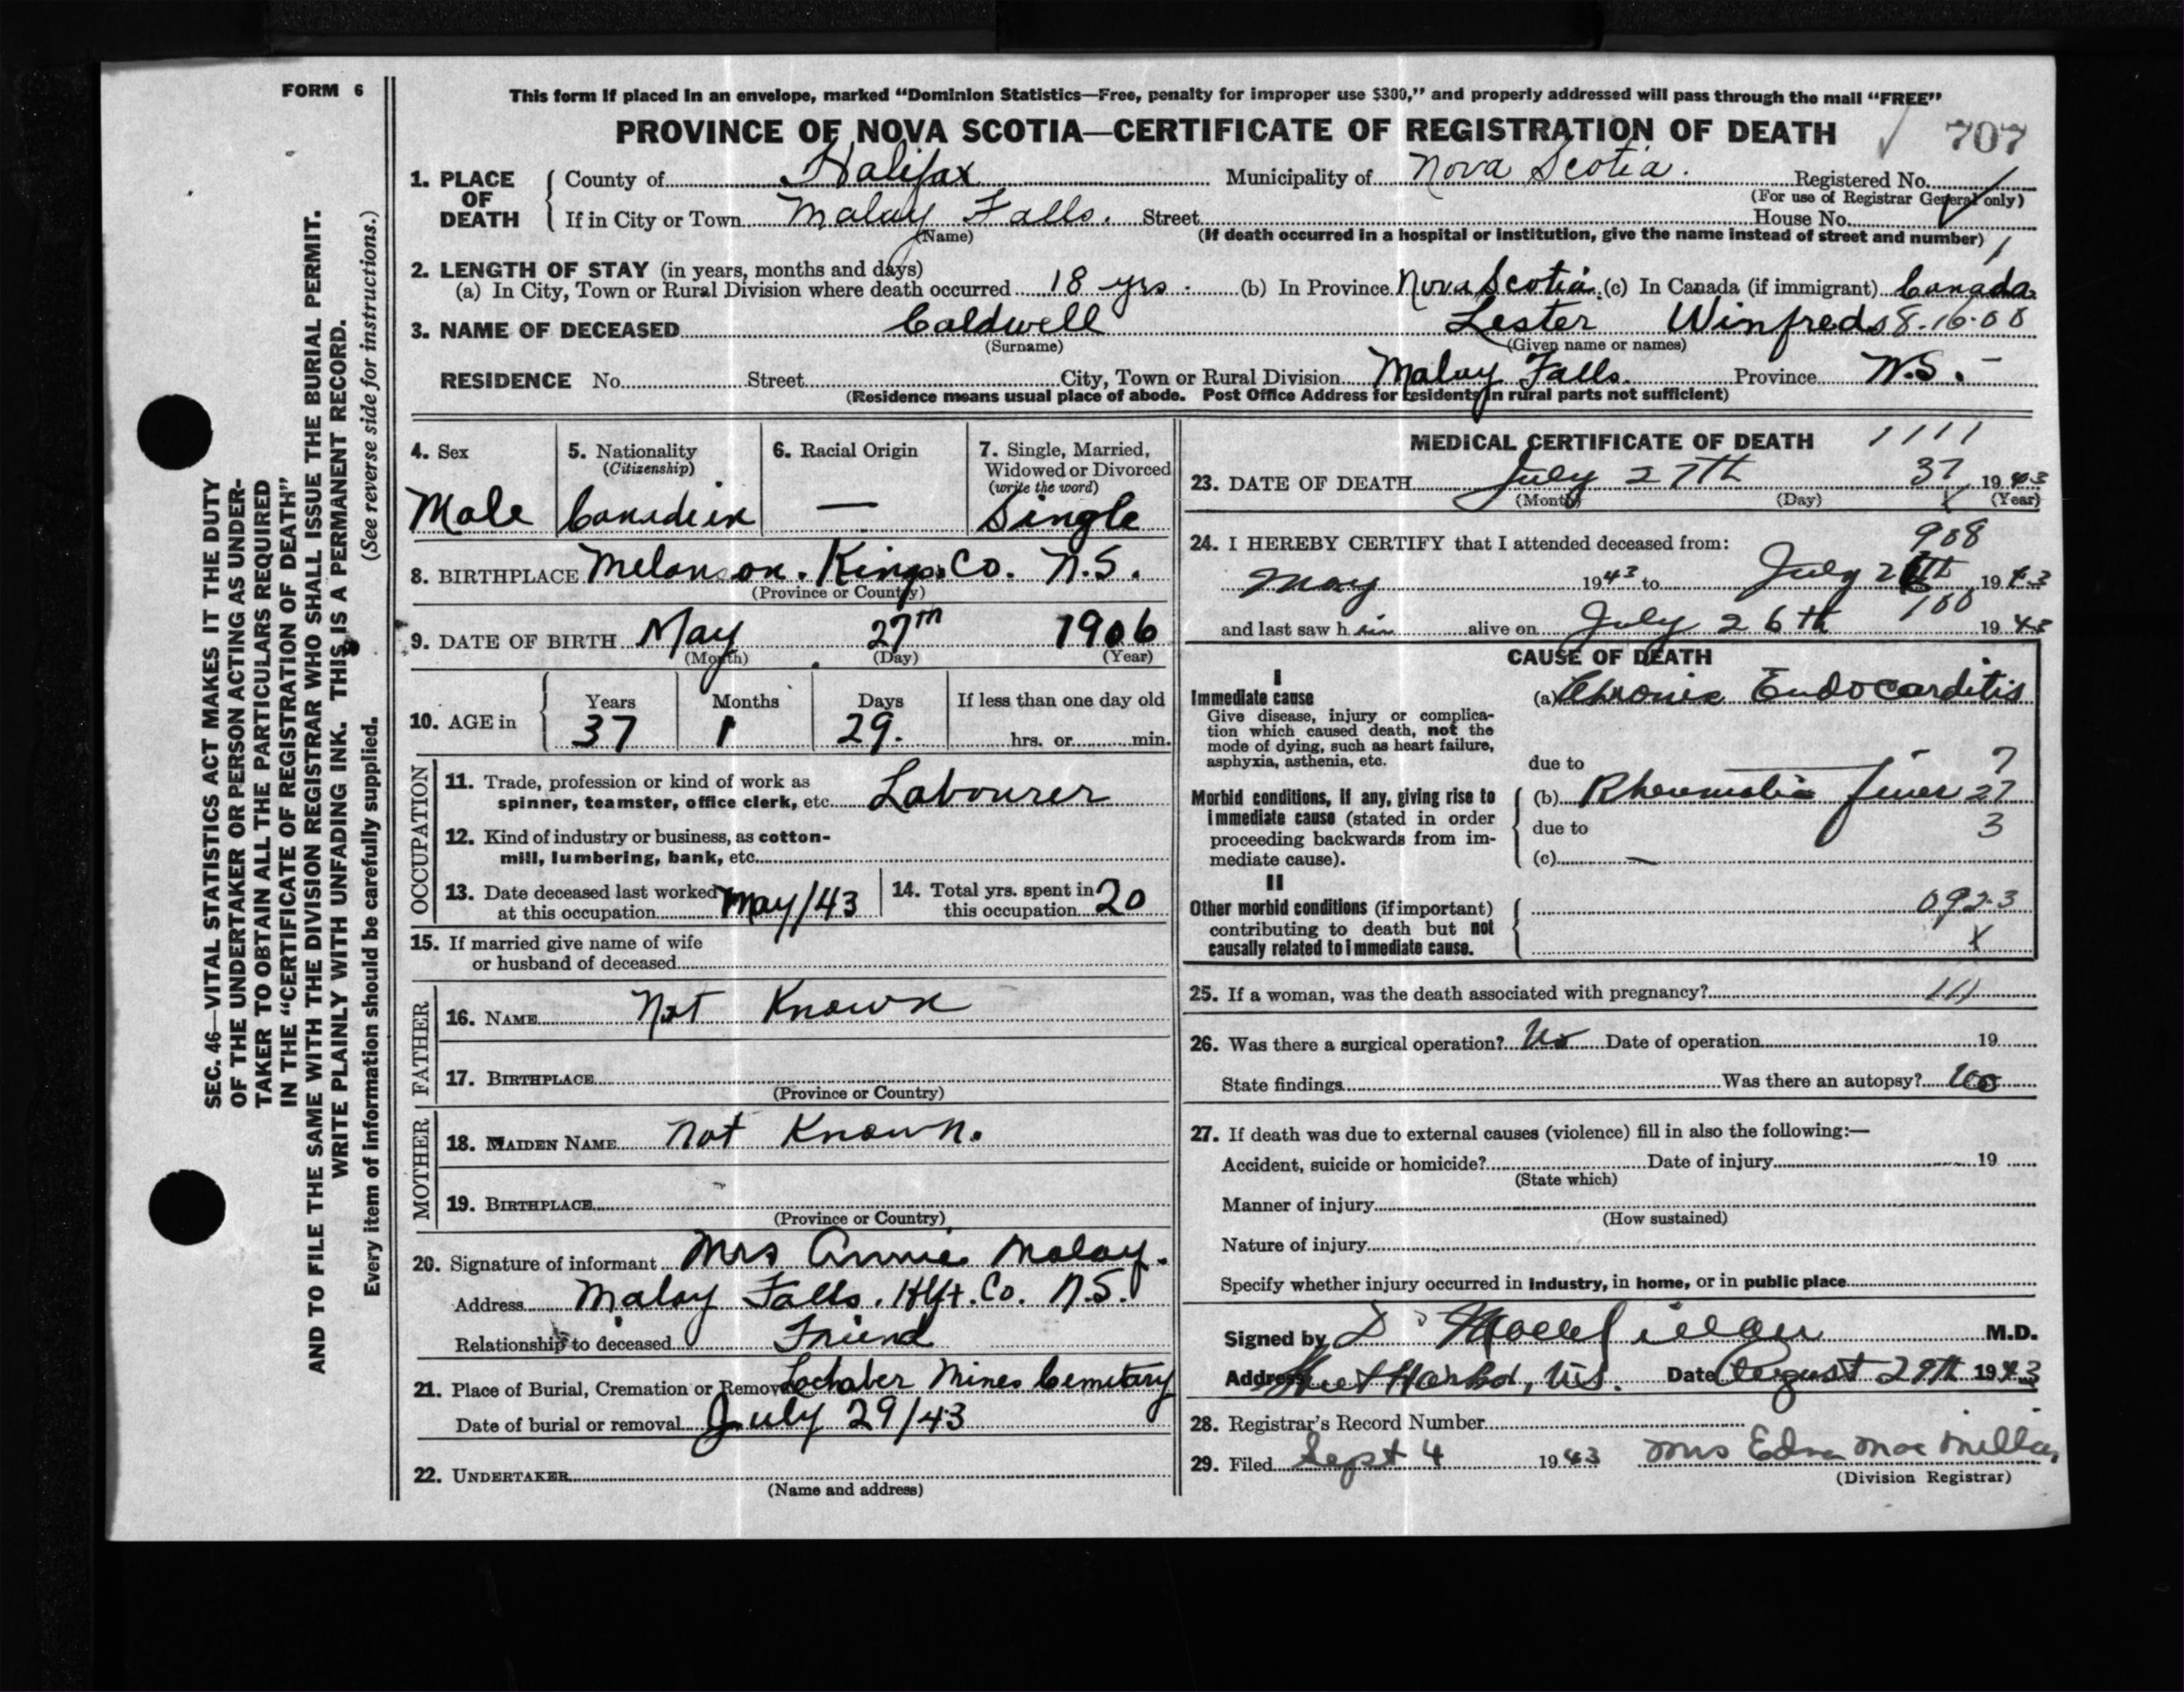 FORM 6
This form if placed in an envelope, marked "Dominion Statistics—Free, penalty for improper use $300," and properly addressed will pass through the mail "FREE"
PROVINCE OF NOVA SCOTIA—CERTIFICATE OF REGISTRATION OF DEATH
707
1. PLACE OF DEATH County of Halifax Municipality of Nova Scotia. Registered No.
(For use of Registrar General only)
If in City or Town Malay Falls. Street House No.
(Name) (If death occurred in a hospital or institution, give the name instead of street and number)
2. LENGTH OF STAY (in years, months and days)
(a) In City, Town or Rural Division where death occurred 18 yrs. (b) In Province Nova Scotia. (c) In Canada (if immigrant) Canada
3. NAME OF DECEASED Caldwell Lester Winfred 8-16-08
(Surname) (Given name or names)
RESIDENCE No. Street City, Town or Rural Division Malay Falls. Province N.S. -
(Residence means usual place of abode. Post Office Address for residents in rural parts not sufficient)
4. Sex
Male
5. Nationality
(Citizenship)
Canadien
6. Racial Origin
—
7. Single, Married, Widowed or Divorced
(write the word)
Single
8. BIRTHPLACE Melanson. Kings Co. N.S.
(Province or Country)
9. DATE OF BIRTH May 27th 1906
(Month) (Day) (Year)
10. AGE in Years Months Days If less than one day old
37 1 29. hrs. or min.
OCCUPATION
11. Trade, profession or kind of work as
spinner, teamster, office clerk, etc. Labourer
12. Kind of industry or business, as cotton-
mill, lumbering, bank, etc.
13. Date deceased last worked
at this occupation May/43
14. Total yrs. spent in
this occupation 20
15. If married give name of wife
or husband of deceased
FATHER
16. NAME Not Known
17. BIRTHPLACE
(Province or Country)
MOTHER
18. MAIDEN NAME Not Known.
19. BIRTHPLACE
(Province or Country)
20. Signature of informant Mrs Annie Malay.
Address Malay Falls. Hfx. Co. N.S.
Relationship to deceased Friend
21. Place of Burial, Cremation or Removal Lochaber Mines Cemetary
Date of burial or removal July 29/43
22. UNDERTAKER
(Name and address)
MEDICAL CERTIFICATE OF DEATH 1111
23. DATE OF DEATH July 27th 37 1943
(Month) (Day) X (Year)
24. I HEREBY CERTIFY that I attended deceased from: 908
May 1943 to July 26th 1943
100
and last saw him alive on July 26th 1943
CAUSE OF DEATH
I
Immediate cause
Give disease, injury or complica-
tion which caused death, not the
mode of dying, such as heart failure,
asphyxia, asthenia, etc.
(a) Chronic Endocarditis
due to 7
Morbid conditions, if any, giving rise to
immediate cause (stated in order
proceeding backwards from im-
mediate cause).
(b) Rheumatic fever 27
due to 3
(c) —
II
Other morbid conditions (if important)
contributing to death but not
causally related to immediate cause.
092-3
X
25. If a woman, was the death associated with pregnancy? 111
26. Was there a surgical operation? No Date of operation 19
State findings Was there an autopsy? No
27. If death was due to external causes (violence) fill in also the following:—
Accident, suicide or homicide? Date of injury 19
(State which)
Manner of injury
(How sustained)
Nature of injury
Specify whether injury occurred in industry, in home, or in public place
Signed by M.D.
Address Harbor, N.S. Date August 29th 1943
28. Registrar's Record Number
29. Filed Sept 4 1943 Mrs Edna MacMillan
(Division Registrar)
SEC. 46—VITAL STATISTICS ACT MAKES IT THE DUTY
OF THE UNDERTAKER OR PERSON ACTING AS UNDER-
TAKER TO OBTAIN ALL THE PARTICULARS REQUIRED
IN THE "CERTIFICATE OF REGISTRATION OF DEATH"
AND TO FILE THE SAME WITH THE DIVISION REGISTRAR WHO SHALL ISSUE THE BURIAL PERMIT.
WRITE PLAINLY WITH UNFADING INK. THIS IS A PERMANENT RECORD.
Every item of information should be carefully supplied. (See reverse side for instructions.)